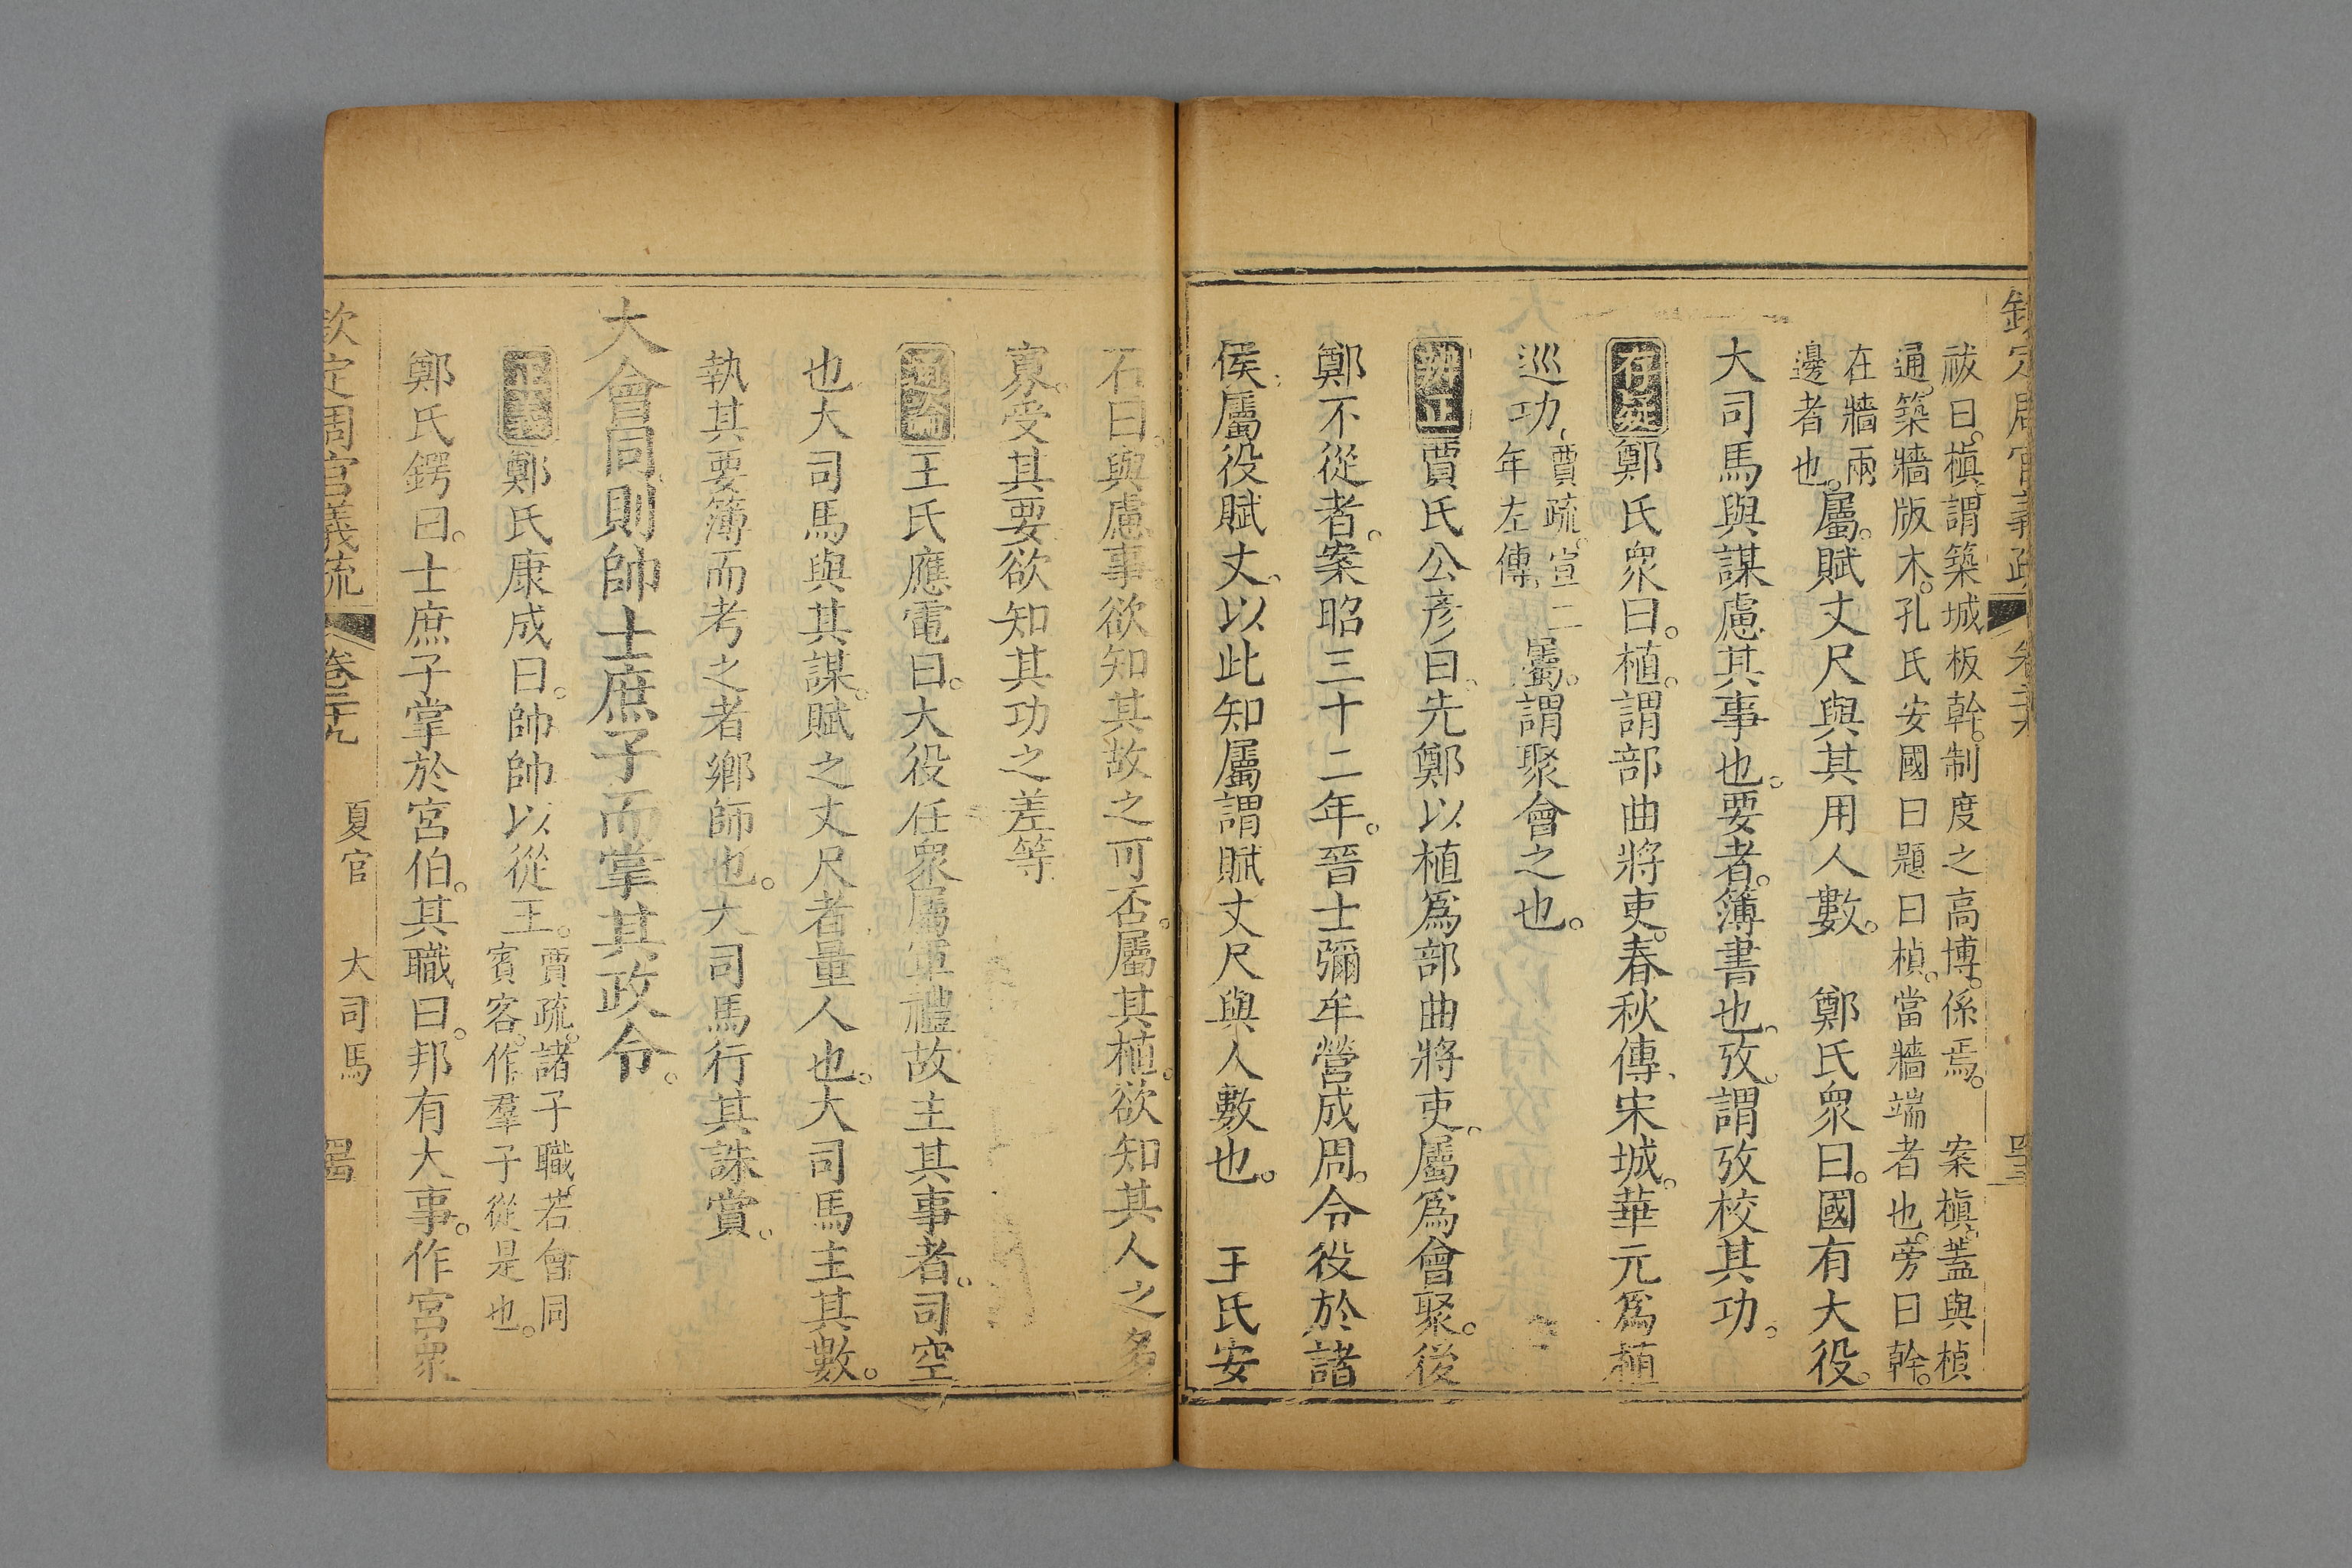 欽定周官義疏　卷二十九　四三
祓曰。槇謂築城板幹。制度之高博。係焉。　案槇。蓋與楨
通。築牆版木。孔氏安國曰題曰楨。當牆端者也。旁曰幹。
在牆兩
邊者也。屬。賦丈尺與其用人數。　鄭氏衆曰。國有大役。
大司馬與謀慮其事也。要者。簿書也。攷。謂攷校其功。
存疑鄭氏衆曰。植。謂部曲將吏。春秋傳、宋城。華元爲植
巡功、賈疏。宣二年左傳、屬。謂聚會之也。
辨正賈氏公彥曰。先鄭以植爲部曲將吏、屬爲會聚。後
鄭不從者。案昭三十二年。晉士彌牟營成周。令役於諸
侯、屬役賦丈。以此知屬謂賦丈尺與人數也。　王氏安
石曰。與慮事。欲知其故之可否。屬其植。欲知其人之多
寡。受其要欲知其功之差等
通論王氏應電曰。大役任衆屬軍禮故主其事者。司空
也大司馬與其謀。賦之丈尺者量人也。大司馬主其數。
執其要簿而考之者鄉師也。大司馬行其誅賞。
大會同則帥士庶子而掌其政令。
正義鄭氏康成曰。帥帥以從王。賈疏。諸子職。若會同
賓客。作羣子從是也。
鄭氏鍔曰。士庶子掌於宮伯。其職曰。邦有大事。作宮衆
欽定周官義疏　卷二十九　夏官　大司馬　四四